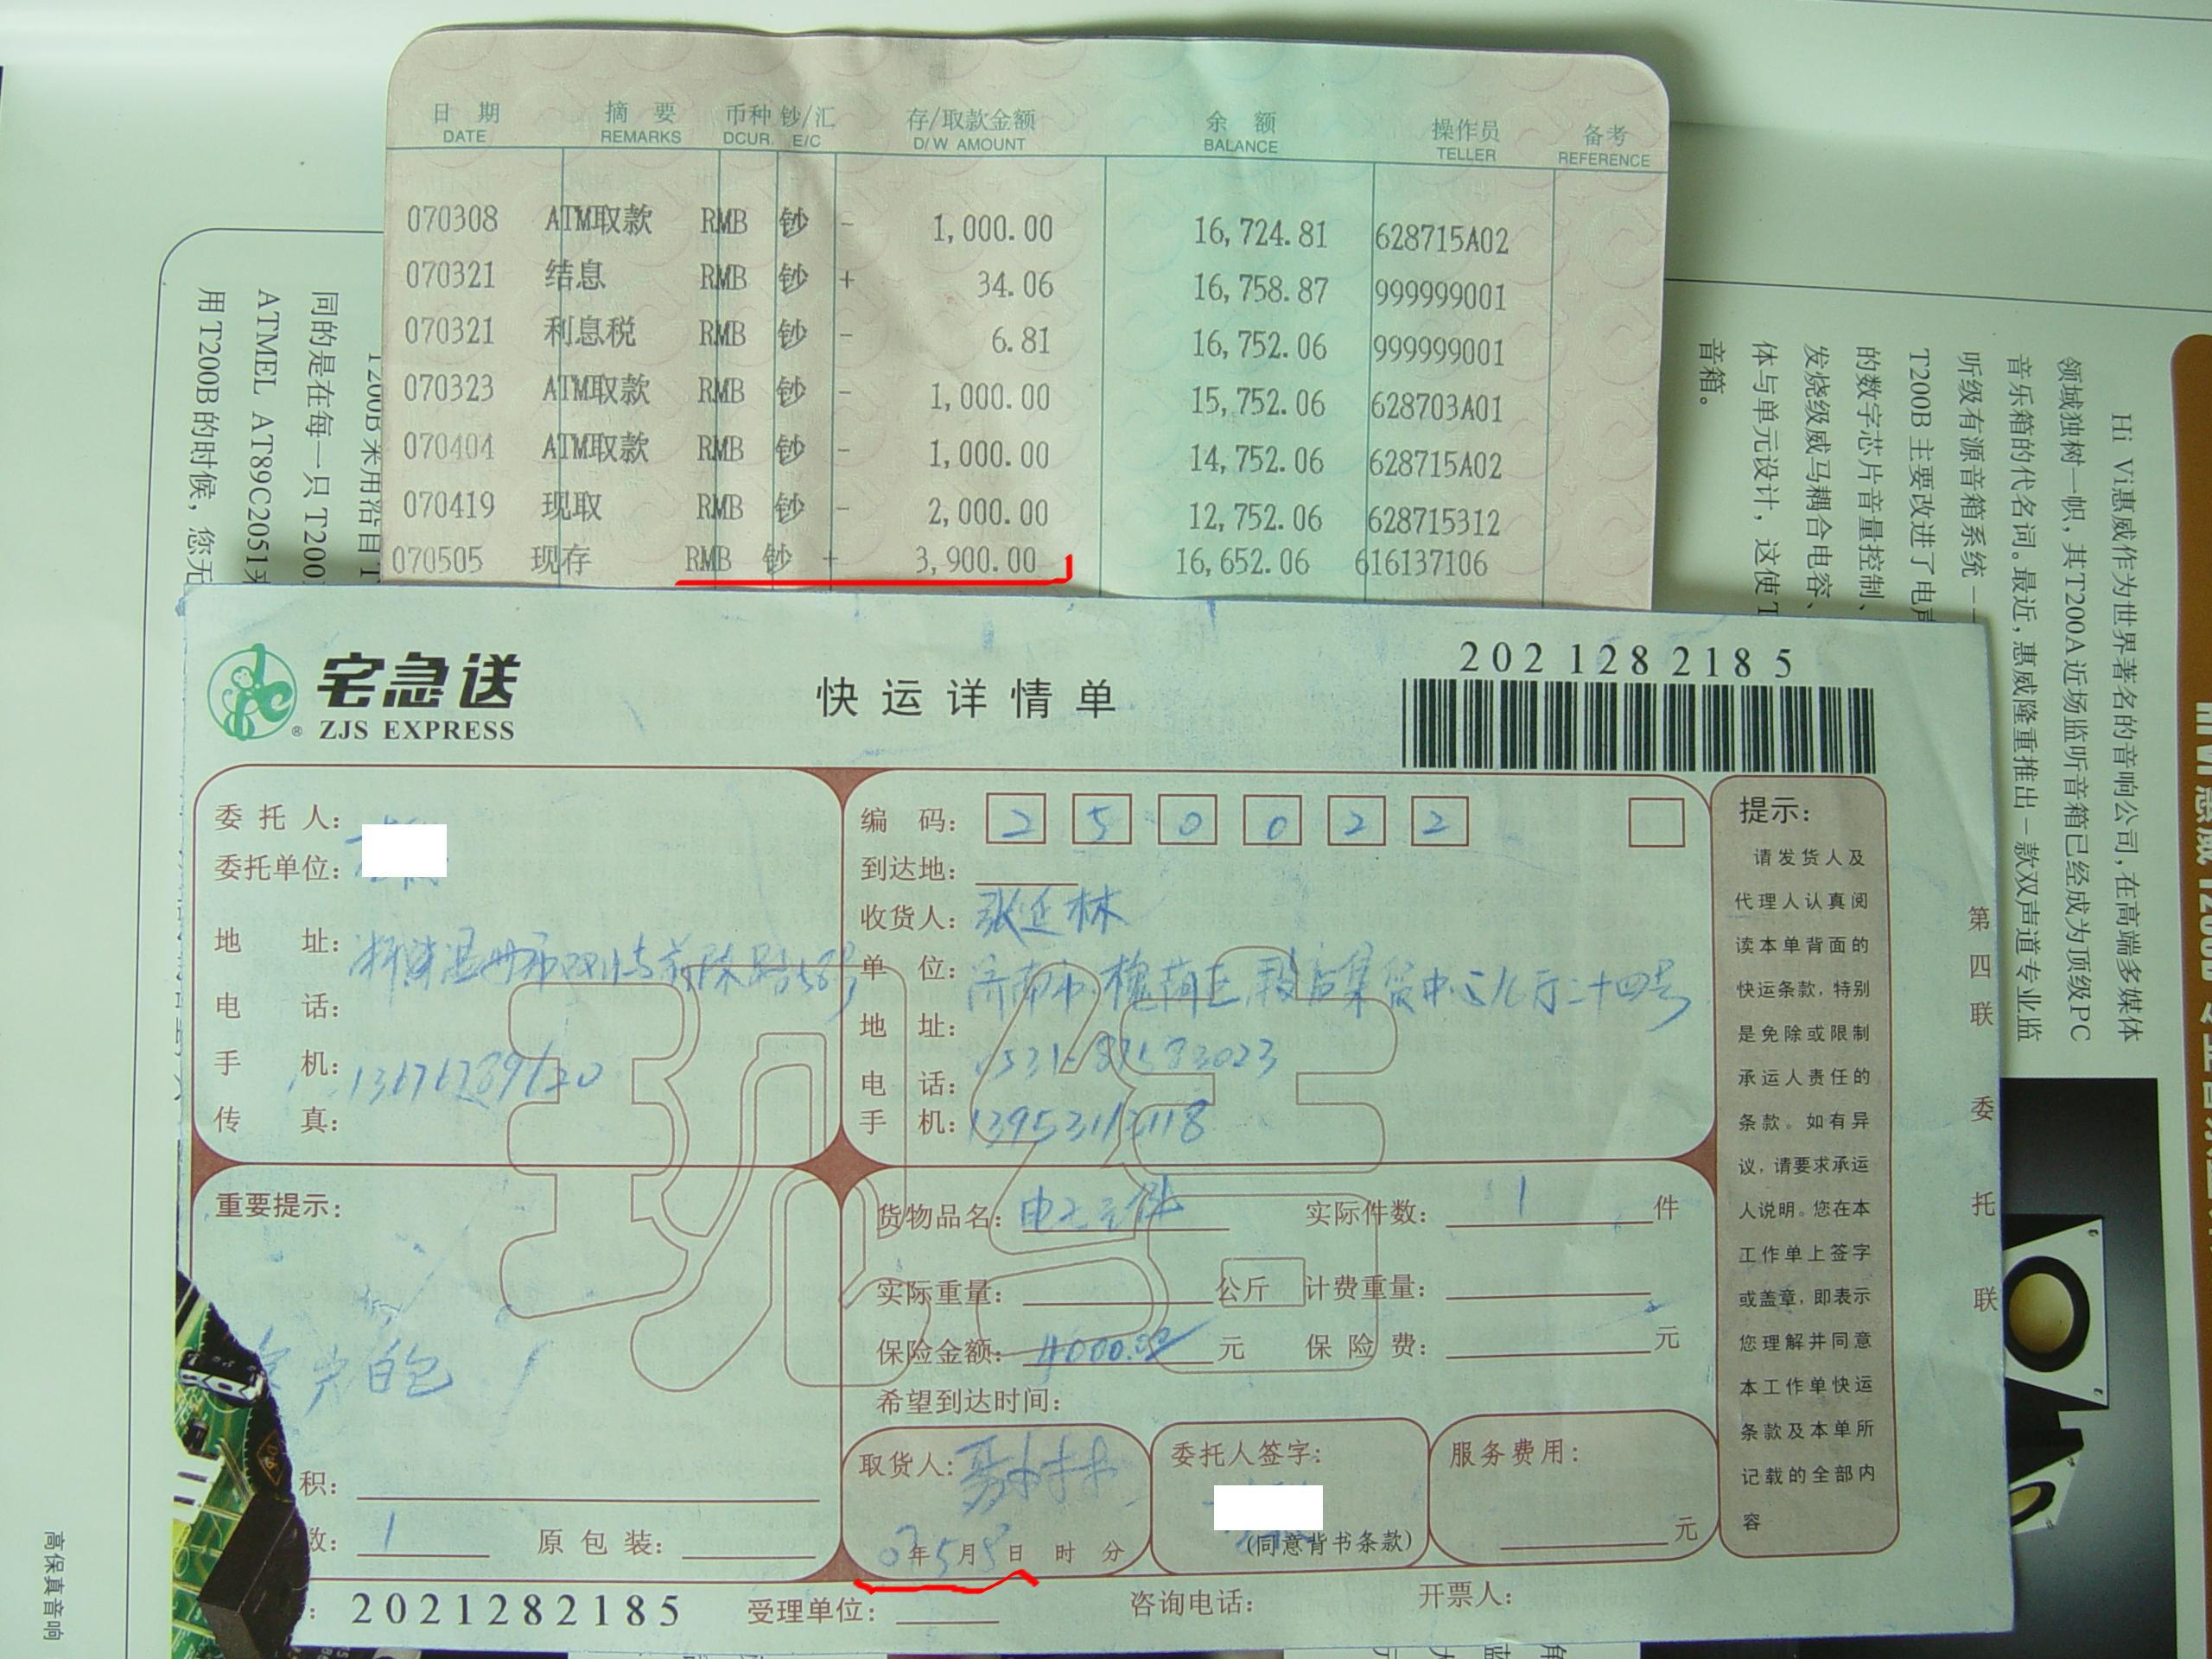 日 期 摘 要 币种 钞/汇 存/取款金额 余 额 操作员 备考
DATE REMARKS DCUR. E/C D/W AMOUNT BALANCE TELLER REFERENCE
070308 ATM取款 RMB 钞 - 1,000.00 16,724.81 628715A02
070321 结息 RMB 钞 + 34.06 16,758.87 999999001
070321 利息税 RMB 钞 - 6.81 16,752.06 999999001
070323 ATM取款 RMB 钞 - 1,000.00 15,752.06 628703A01
070404 ATM取款 RMB 钞 - 1,000.00 14,752.06 628715A02
070419 现取 RMB 钞 - 2,000.00 12,752.06 628715312
070505 现存 RMB 钞 + 3,900.00 16,652.06 616137106
宅急送
ZJS EXPRESS
快运详情单
2021282185
委托人:
委托单位:
地 址:
电 话:
手 机:
传 真:
编 码: 2 5 0 0 2 2
到达地:
收货人: 张延林
单 位: 济南市槐荫区段店集贸中心八厅二十四号
地 址:
电 话: 0531-87583023
手 机:
重要提示:
货物品名: 电子元件 实际件数: 1 件
实际重量: 公斤 计费重量:
保险金额: 4000.00 元 保险费: 元
希望到达时间:
积:
数: 1 原包装:
取货人:
07年5月8日 时 分
委托人签字:
(同意背书条款)
服务费用:
元
2021282185 受理单位: 咨询电话: 开票人:
提示:
请发货人及
代理人认真阅
读本单背面的
快运条款,特别
是免除或限制
承运人责任的
条款。如有异
议,请要求承运
人说明。您在本
工作单上签字
或盖章,即表示
您理解并同意
本工作单快运
条款及本单所
记载的全部内
容
第四联 委托联
Hi Vi惠威作为世界著名的音响公司,在高端多媒体
领域独树一帜,其T200A近场监听音箱已经成为顶级PC
音乐箱的代名词。最近,惠威隆重推出一款双声道专业监
听级有源音箱系统一
T200B主要改进了电声
的数字芯片音量控制、
发烧级威马耦合电容、
体与单元设计,这使T
音箱。
T200B采用沿目T
同的是在每一只T200
ATMEL AT89C2051
用T200B的时候,您无
高保真音响